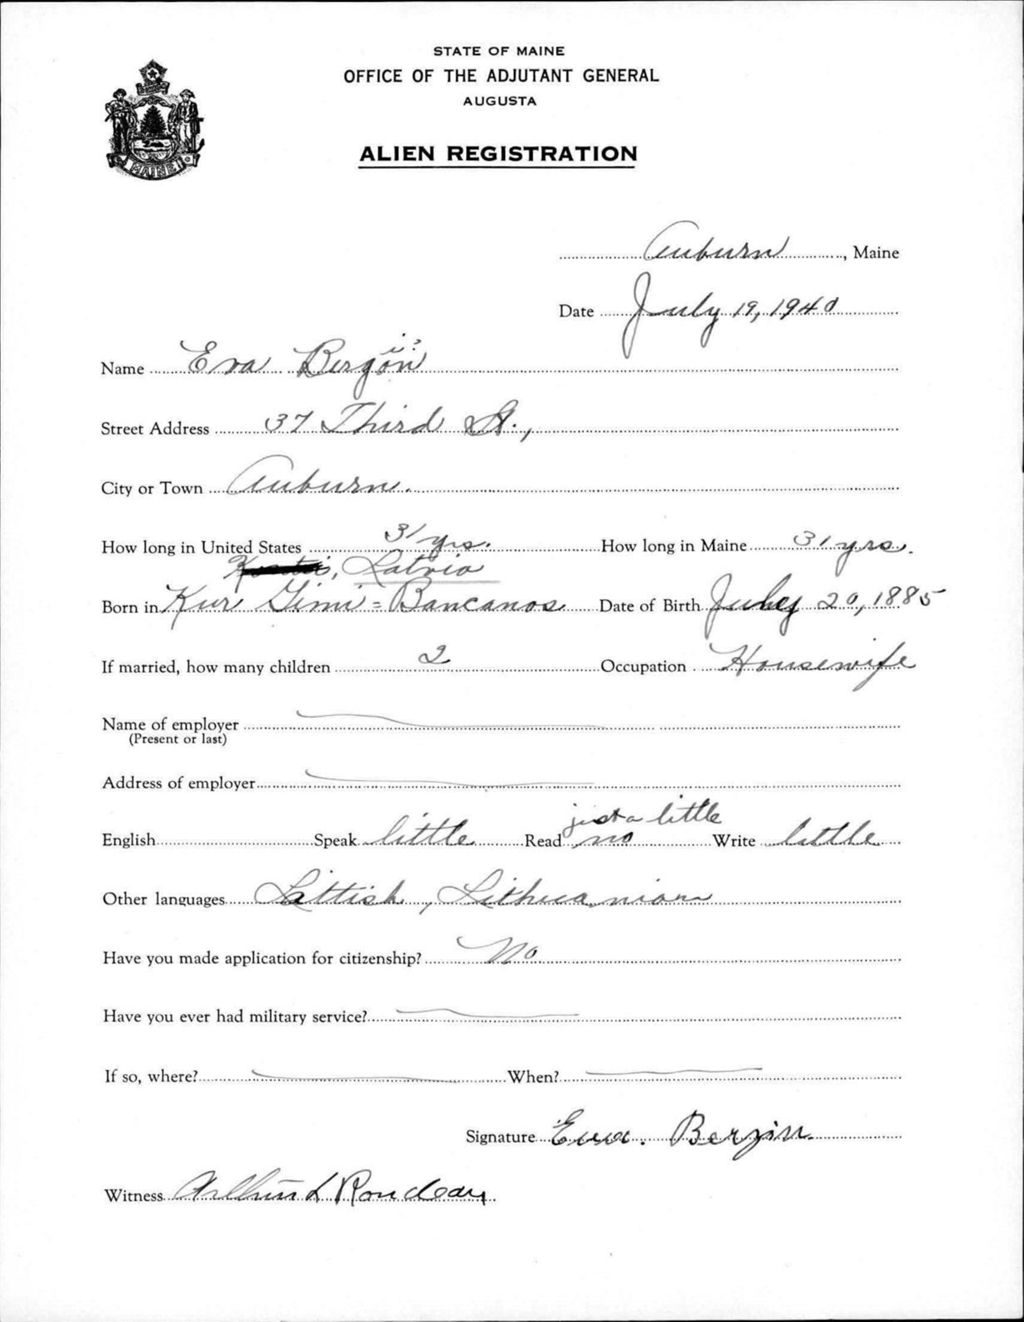 STATE OF MAINE
OFFICE OF THE ADJUTANT GENERAL
AUGUSTA
ALIEN REGISTRATION
MAINE
Auburn, Maine
Date July 19, 1940
i?
Name Eva Bergon
Street Address 37 Third St.,
City or Town Auburn.
How long in United States 31 yrs. How long in Maine 31 yrs.
, Latvia
Born in Kur Gimi = Bancanos Date of Birth July 20, 1885
If married, how many children 2 Occupation Housewife
Name of employer
(Present or last)
Address of employer
just a little
English Speak little Read no Write little
Other languages Lettish, Lithuanian
Have you made application for citizenship? No
Have you ever had military service?
If so, where? When?
Signature Eva. Berzin
Witness Arthur L Rondeau